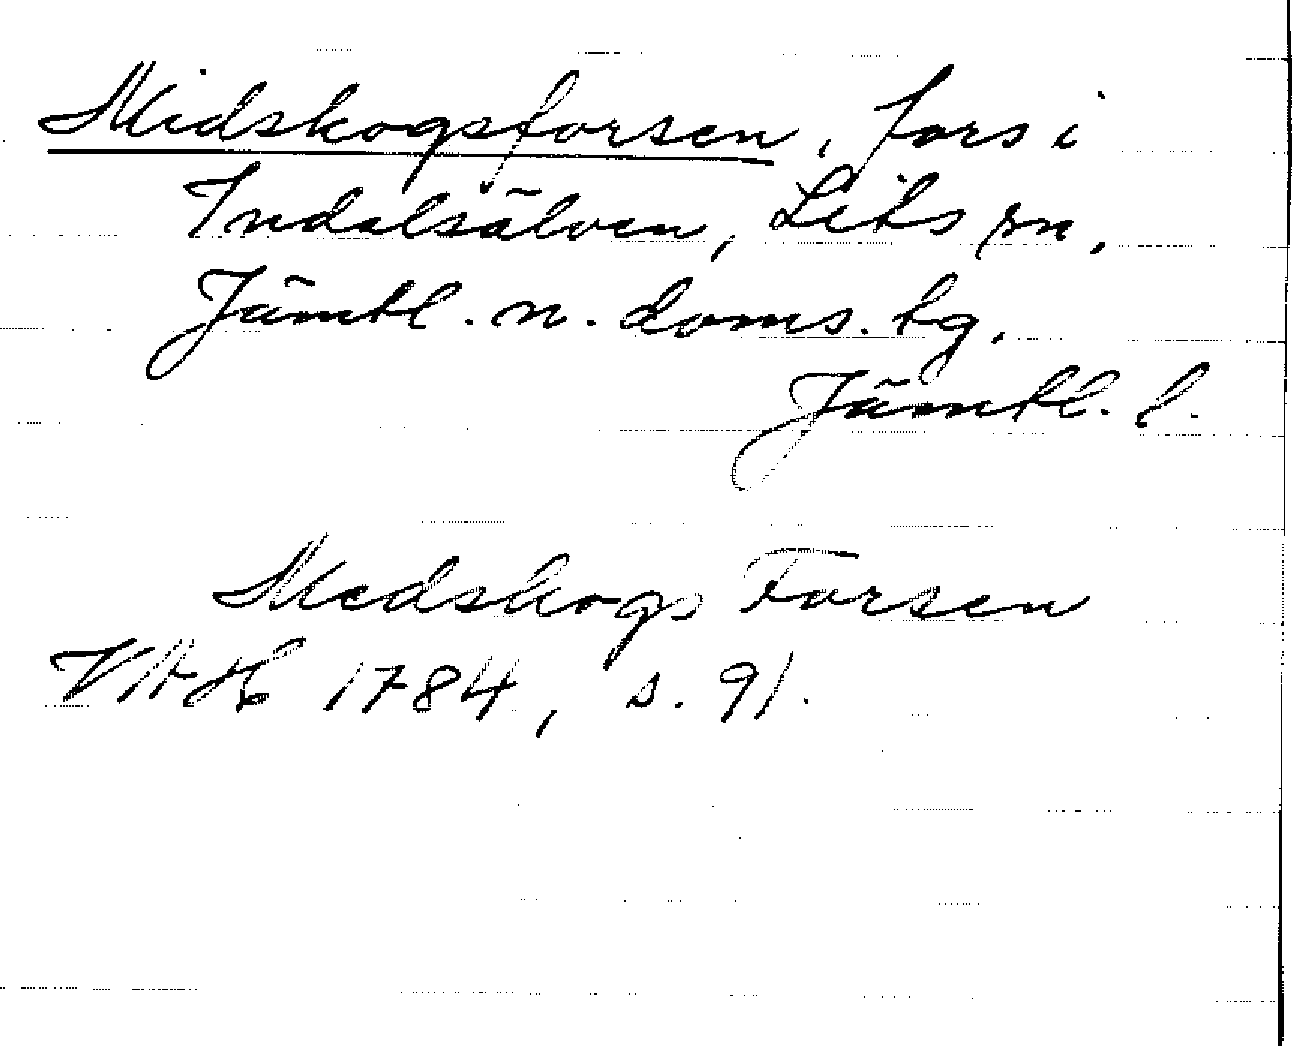 Midskogsforsen, fors i
Indalsälven, Lits sn,
Jämtl. n. doms. tg.
Jämtl. l.
Medskogs Forsen
VAH 1784, s. 91.